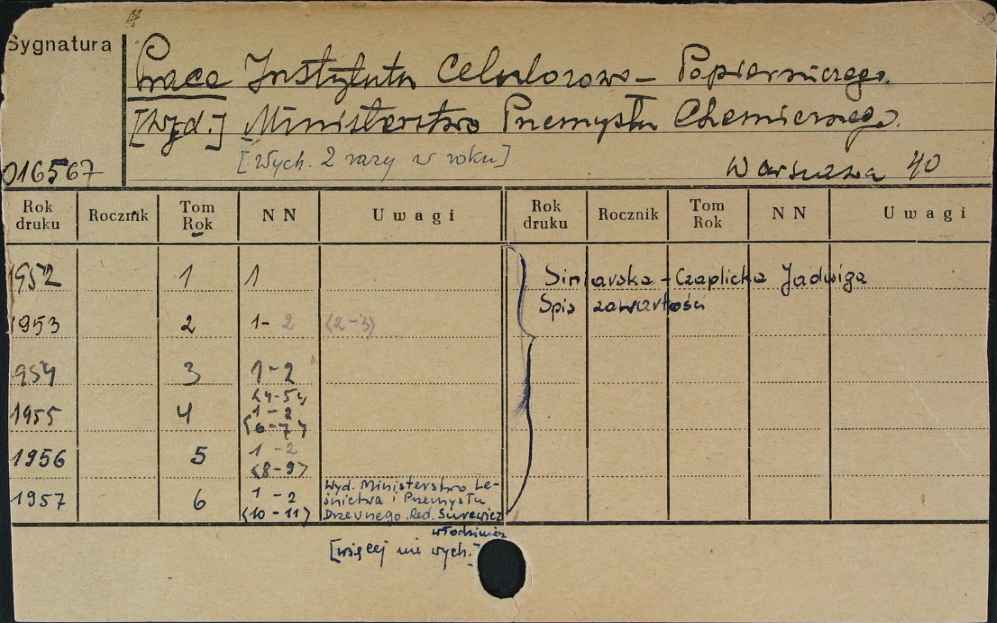 Sygnatura
Prace Instytutu Celulozowo-Papierniczego.
[Wyd.] Ministerstwo Przemysłu Chemicznego.
[Wych. 2 razy w roku]
016567
Warszawa 40
Rok druku Rocznik Tom Rok NN Uwagi Rok druku Rocznik Tom Rok NN Uwagi
1952 1 1
Siniarska-Czaplicka Jadwiga
Spis zawartości
1953 2 1-2 (2-3)
1954 3 1-2
(4-5)
1955 4 1-2
(6-7)
1956 5 1-2
(8-9)
1957 6 1-2
(10-11)
Wyd. Ministerstwo Le-
śnictwa i Przemysłu
Drzewnego. Red. Surewicz
Włodzimierz
[więcej nie wych.]